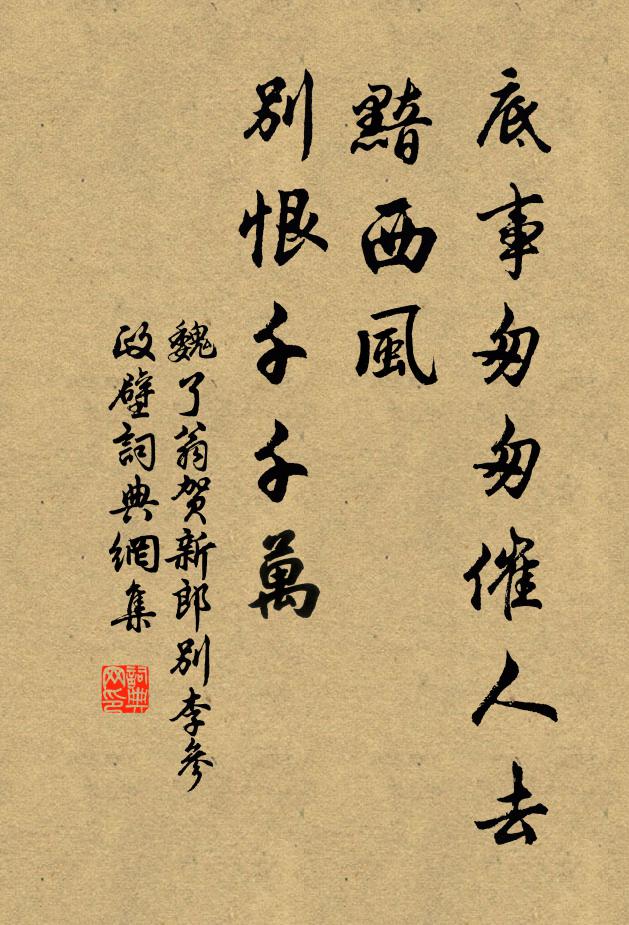 底事匆匆催人去
黯西風
別恨千千萬
魏了翁賀新郎別李參
政壁詞典網集
詞典网印